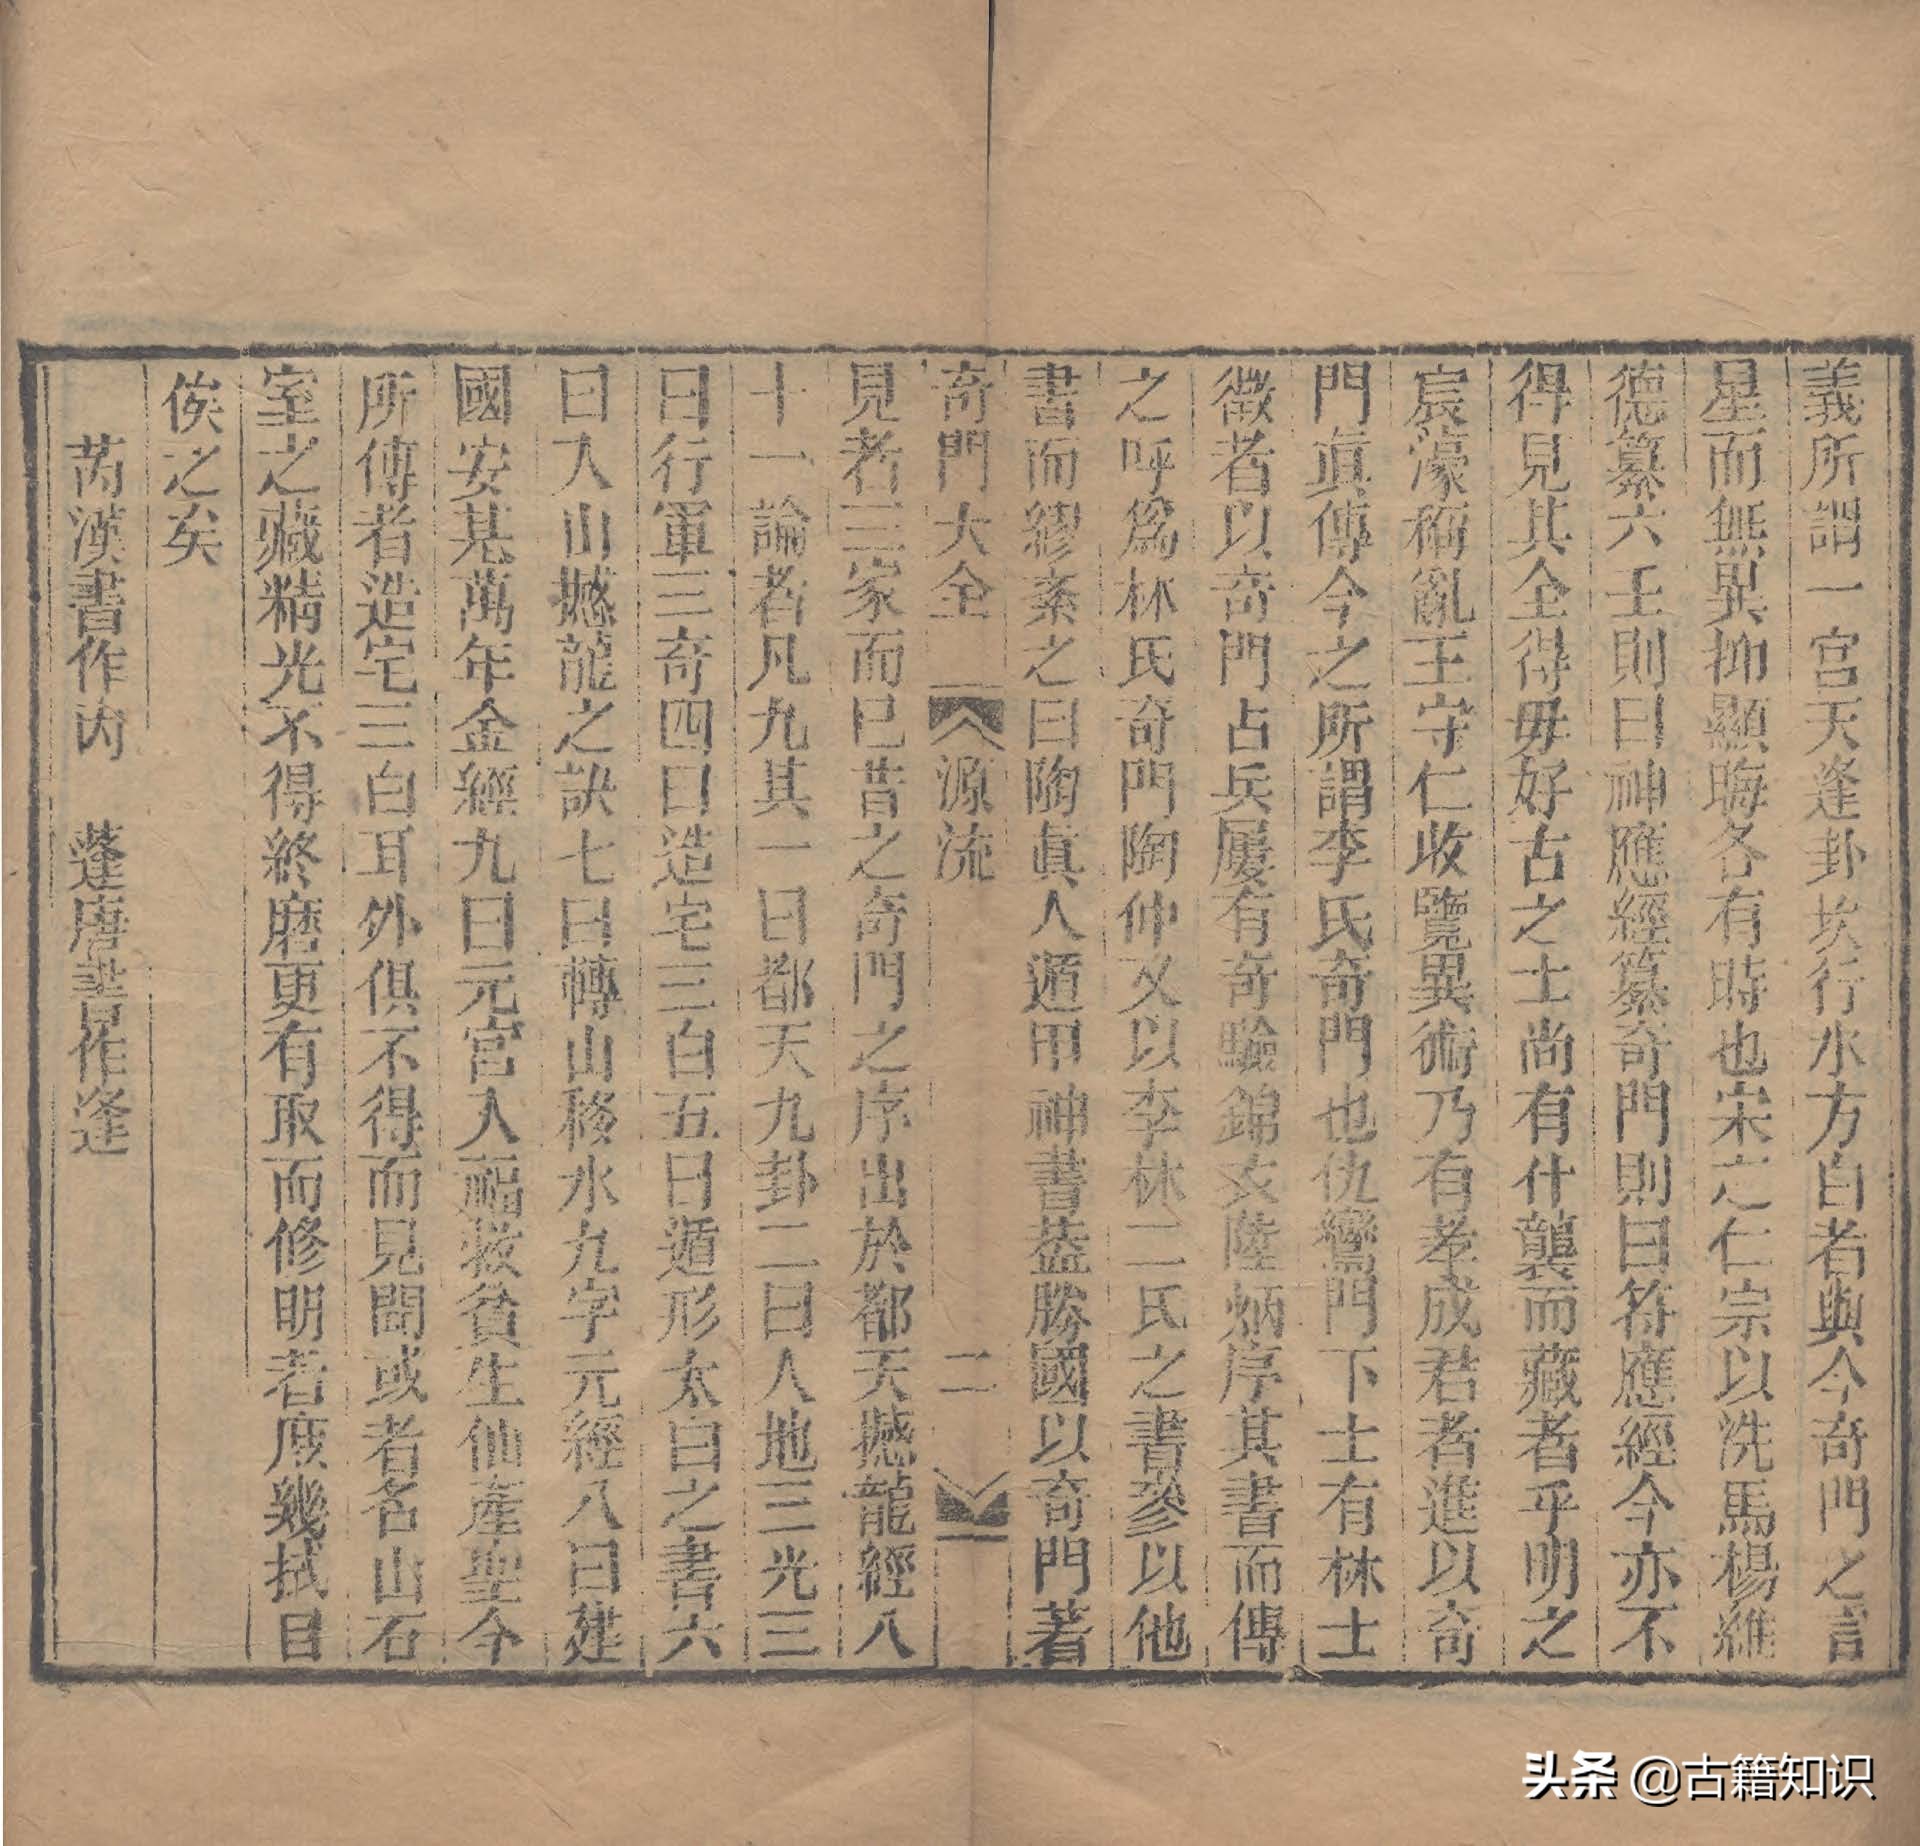 義所謂一宮天逢卦坎行水方白者與今奇門之言
星而無異抑顯晦各有時也宋之仁宗以洗馬楊維
德纂六壬則曰神應經纂奇門則曰符應經今亦不
得見其全得毋好古之士尚有什襲而藏者乎明之
宸濠稱亂王守仁收覽異術乃有孝成君者進以奇
門眞傳今之所謂李氏奇門也仇鸞門下士有林士
徵者以奇門占兵屢有奇驗錦衣陸炳序其書而傳
之呼為林氏奇門陶仲文以李林二氏之書參以他
書而繆紊之曰陶眞人遁甲神書蓋勝國以奇門著
奇門大全 源流 二
見者三家而已昔之奇門之序出於都天撼龍經八
十一論者凡九其一曰都天九卦二曰人地三光三
曰行軍三奇四曰造宅三白五曰遁形太白之書六
曰入山撼龍之訣七曰轉山移水九字元經八曰建
國安基萬年金經九曰元宮入福救貧生仙產聖今
所傳者造宅三白耳外俱不得而見聞或者名山石
室之藏精光不得終磨更有取而修明者庶幾拭目
俟之矣
芮漢書作內 蓬唐書作逢
头条 @古籍知识